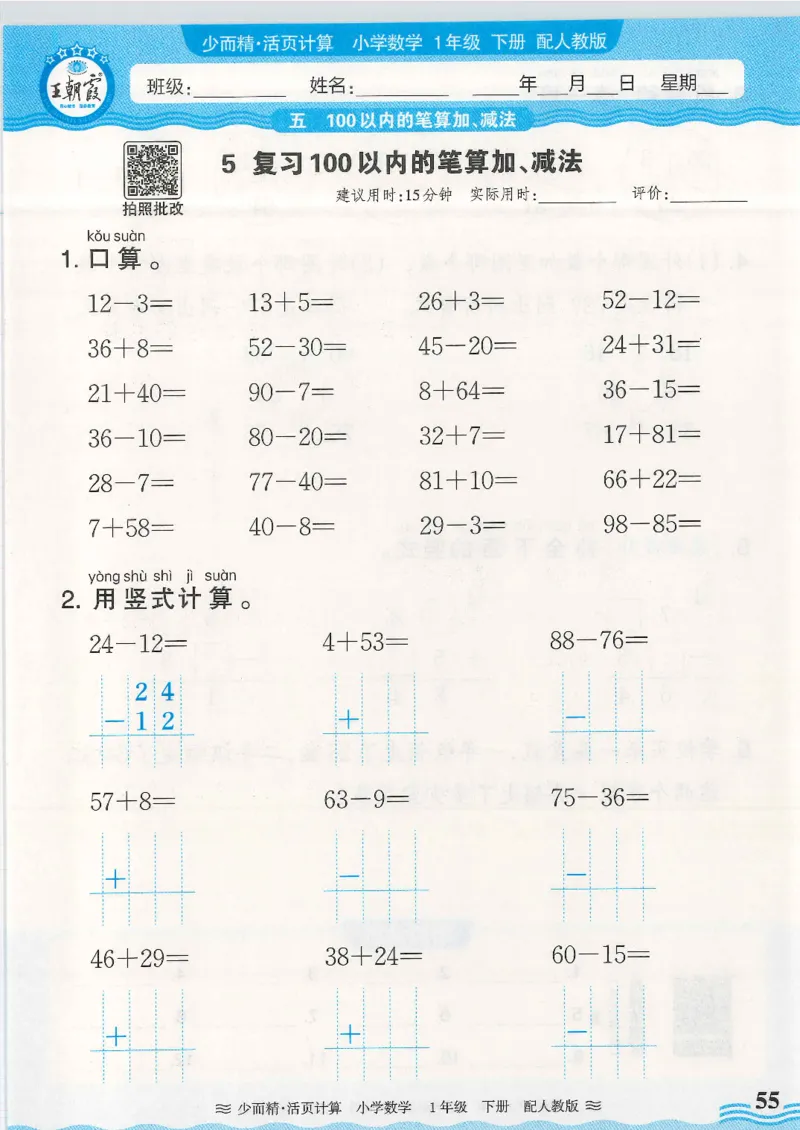 少而精·活页计算 小学数学 1年级 下册 配人教版
王朝霞
班级:________ 姓名:________ ____年__月__日 星期___
五 100以内的笔算加、减法
5 复习100以内的笔算加、减法
建议用时:15分钟 实际用时:________ 评价:________
拍照批改
kǒu suàn
1. 口算。
12－3＝ 13＋5＝ 26＋3＝ 52－12＝
36＋8＝ 52－30＝ 45－20＝ 24＋31＝
21＋40＝ 90－7＝ 8＋64＝ 36－15＝
36－10＝ 80－20＝ 32＋7＝ 17＋81＝
28－7＝ 77－40＝ 81＋10＝ 66＋22＝
7＋58＝ 40－8＝ 29－3＝ 98－85＝
yòng shù shì jì suàn
2. 用竖式计算。
24－12＝ 4＋53＝ 88－76＝
2 4
－1 2 ＋ －
57＋8＝ 63－9＝ 75－36＝
＋ － －
46＋29＝ 38＋24＝ 60－15＝
＋ ＋ －
少而精·活页计算 小学数学 1年级 下册 配人教版
55